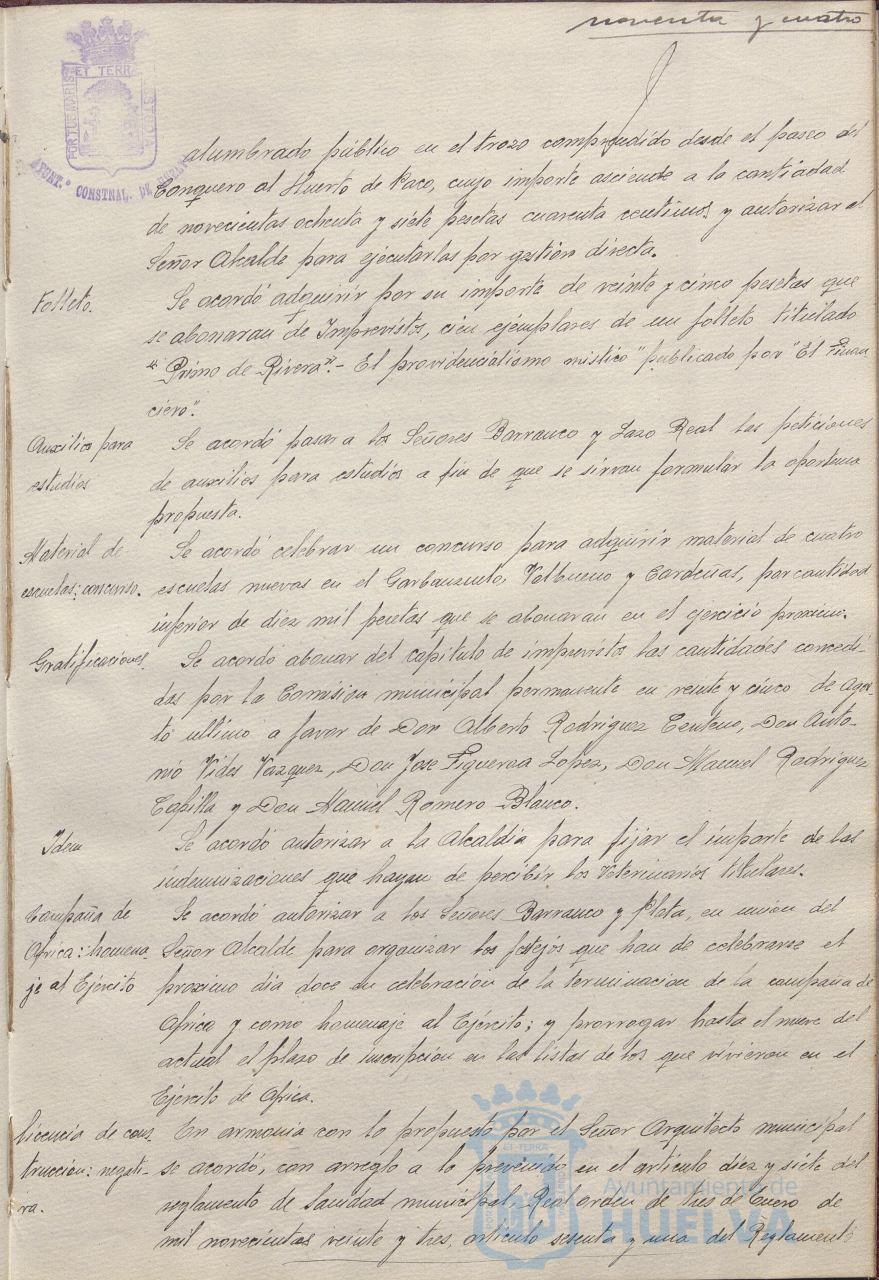 noventa y cuatro
PORTUS MARIS ET TERRAE CUSTODIA
AYUNT.º CONSTNAL. DE HUELVA
alumbrado público en el trozo comprendido desde el paseo del
Conquero al Huerto de Paco, cuyo importe asciende a la cantidad
de novecientas ochenta y siete pesetas cuarenta centimos, y autorizar al
Señor Alcalde para ejecutarlas por gestión directa.
Folleto.
Se acordó adquirir por su importe de veinte y cinco pesetas que
se abonaran de Imprevistos, cien ejemplares de un folleto titulado
"Primo de Rivera".- El providencialismo mistico" publicado por "El Finan
ciero".
Auxilios para
estudios
Se acordó pasar a los Señores Barranco y Lazo Real las peticiones
de auxilios para estudios a fin de que se sirvan formular la oportuna
propuesta.
Material de
escuelas: concurso.
Se acordó celebrar un concurso para adquirir material de cuatro
escuelas nuevas en el Garbanzuelo, Valbueno y Cardeñas, por cantidad
inferior de diez mil pesetas que se abonaran en el ejercicio proximo.
Gratificaciones.
Se acordó abonar del capitulo de imprevistos las cantidades concedi-
das por la Comision municipal permanente en veinte y cinco de Agos-
to ultimo a favor de Don Alberto Rodriguez Centeno, Don Anto-
nio Vides Vazquez, Don Jose Figueroa Lopez, Don Manuel Rodriguez
Capilla y Don Manuel Romero Blanco.
Idem
Se acordó autorizar a la Alcaldia para fijar el importe de las
indemnizaciones que hayan de percibir los Veterinarios titulares.
Campaña de
Africa: homena-
je al Ejército
Se acordó autorizar a los Señores Barranco y Plata, en union del
Señor Alcalde para organizar los festejos que han de celebrarse el
proximo dia doce en celebracion de la terminacion de la campaña de
Africa y como homenaje al Ejército; y prorrogar hasta el nueve del
actual el plazo de inscripcion en las listas de los que vivieron en el
Ejército de Africa.
Licencia de cons
truccion: negati-
va.
En armonia con lo propuesto por el Señor Arquitecto municipal
se acordó, con arreglo a lo prevenido en el articulo diez y siete del
reglamento de Sanidad municipal, Real orden de tres de Enero de
mil novecientos veinte y tres, articulo sesenta y uno del Reglamento
Ayuntamiento de
HUELVA